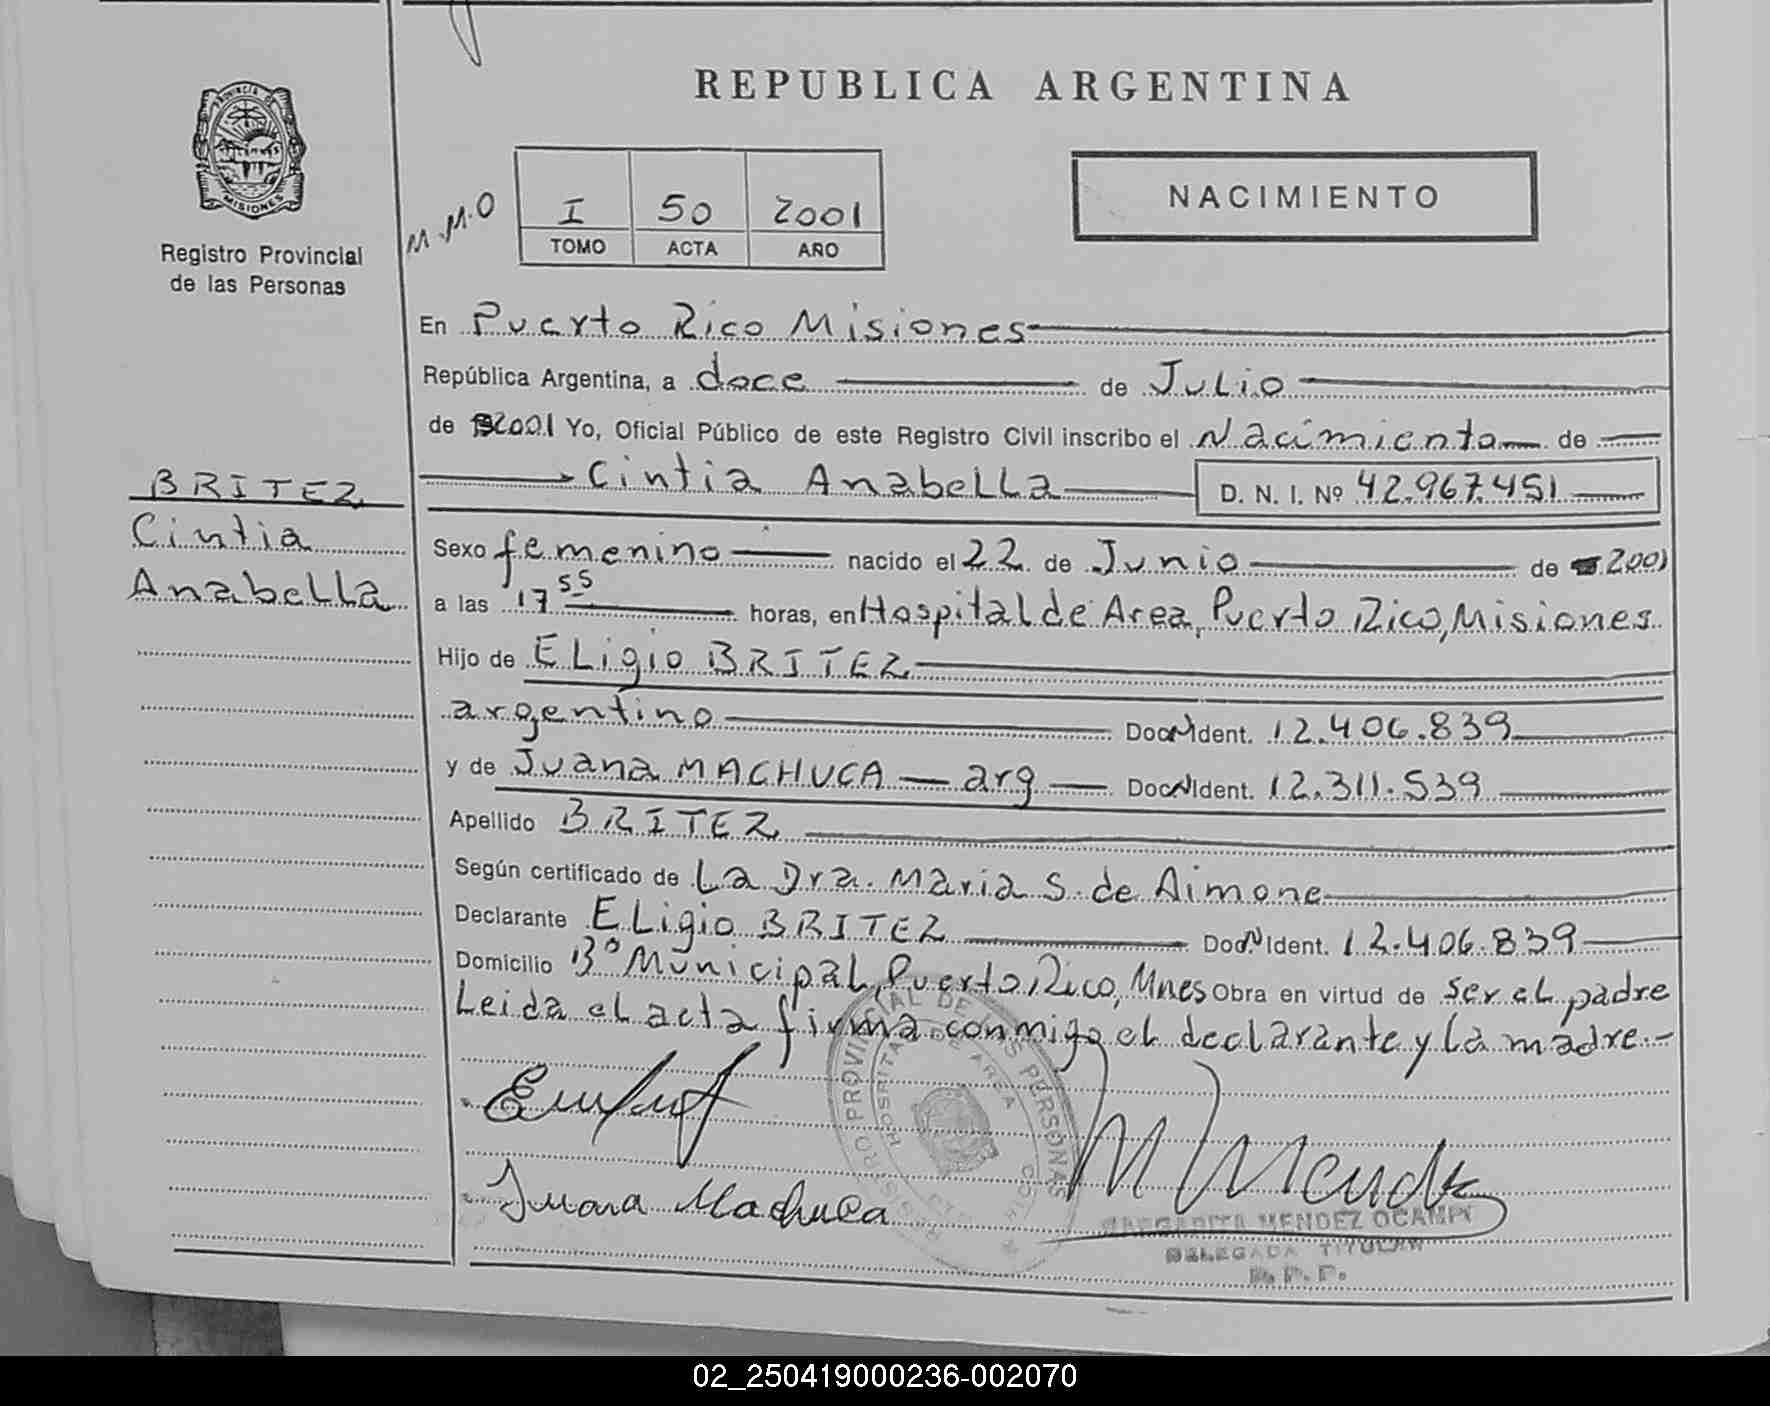 REPUBLICA ARGENTINA
PROVINCIA DE
MISIONES
Registro Provincial
de las Personas
M.M.O
I 50 2001
TOMO ACTA AÑO
NACIMIENTO
En Puerto Rico Misiones
República Argentina, a doce de Julio
de 2001 Yo, Oficial Público de este Registro Civil inscribo el Nacimiento de
Cintia Anabella D. N. I. Nº 42.967.451
BRITEZ
Cintia
Anabella
Sexo femenino nacido el 22 de Junio de 2001
a las 17 55 horas, en Hospital de Area, Puerto Rico, Misiones
Hijo de Eligio BRITEZ
argentino Doc.N.Ident. 12.406.839
y de Juana MACHUCA — arg — Doc.N.Ident. 12.311.539
Apellido BRITEZ
Según certificado de La Dra. Maria S. de Aimone
Declarante Eligio BRITEZ Doc.N.Ident. 12.406.839
Domicilio Bº Municipal, Puerto Rico, Mnes Obra en virtud de ser el padre
Leida el acta firma conmigo el declarante y la madre.-
REGISTRO PROVINCIAL DE LAS PERSONAS
HOSPITAL DE AREA
Juana Machuca
M Mendez
MARGARITA MENDEZ OCAMPO
DELEGADA TITULAR
R. P. P.
02_250419000236-002070